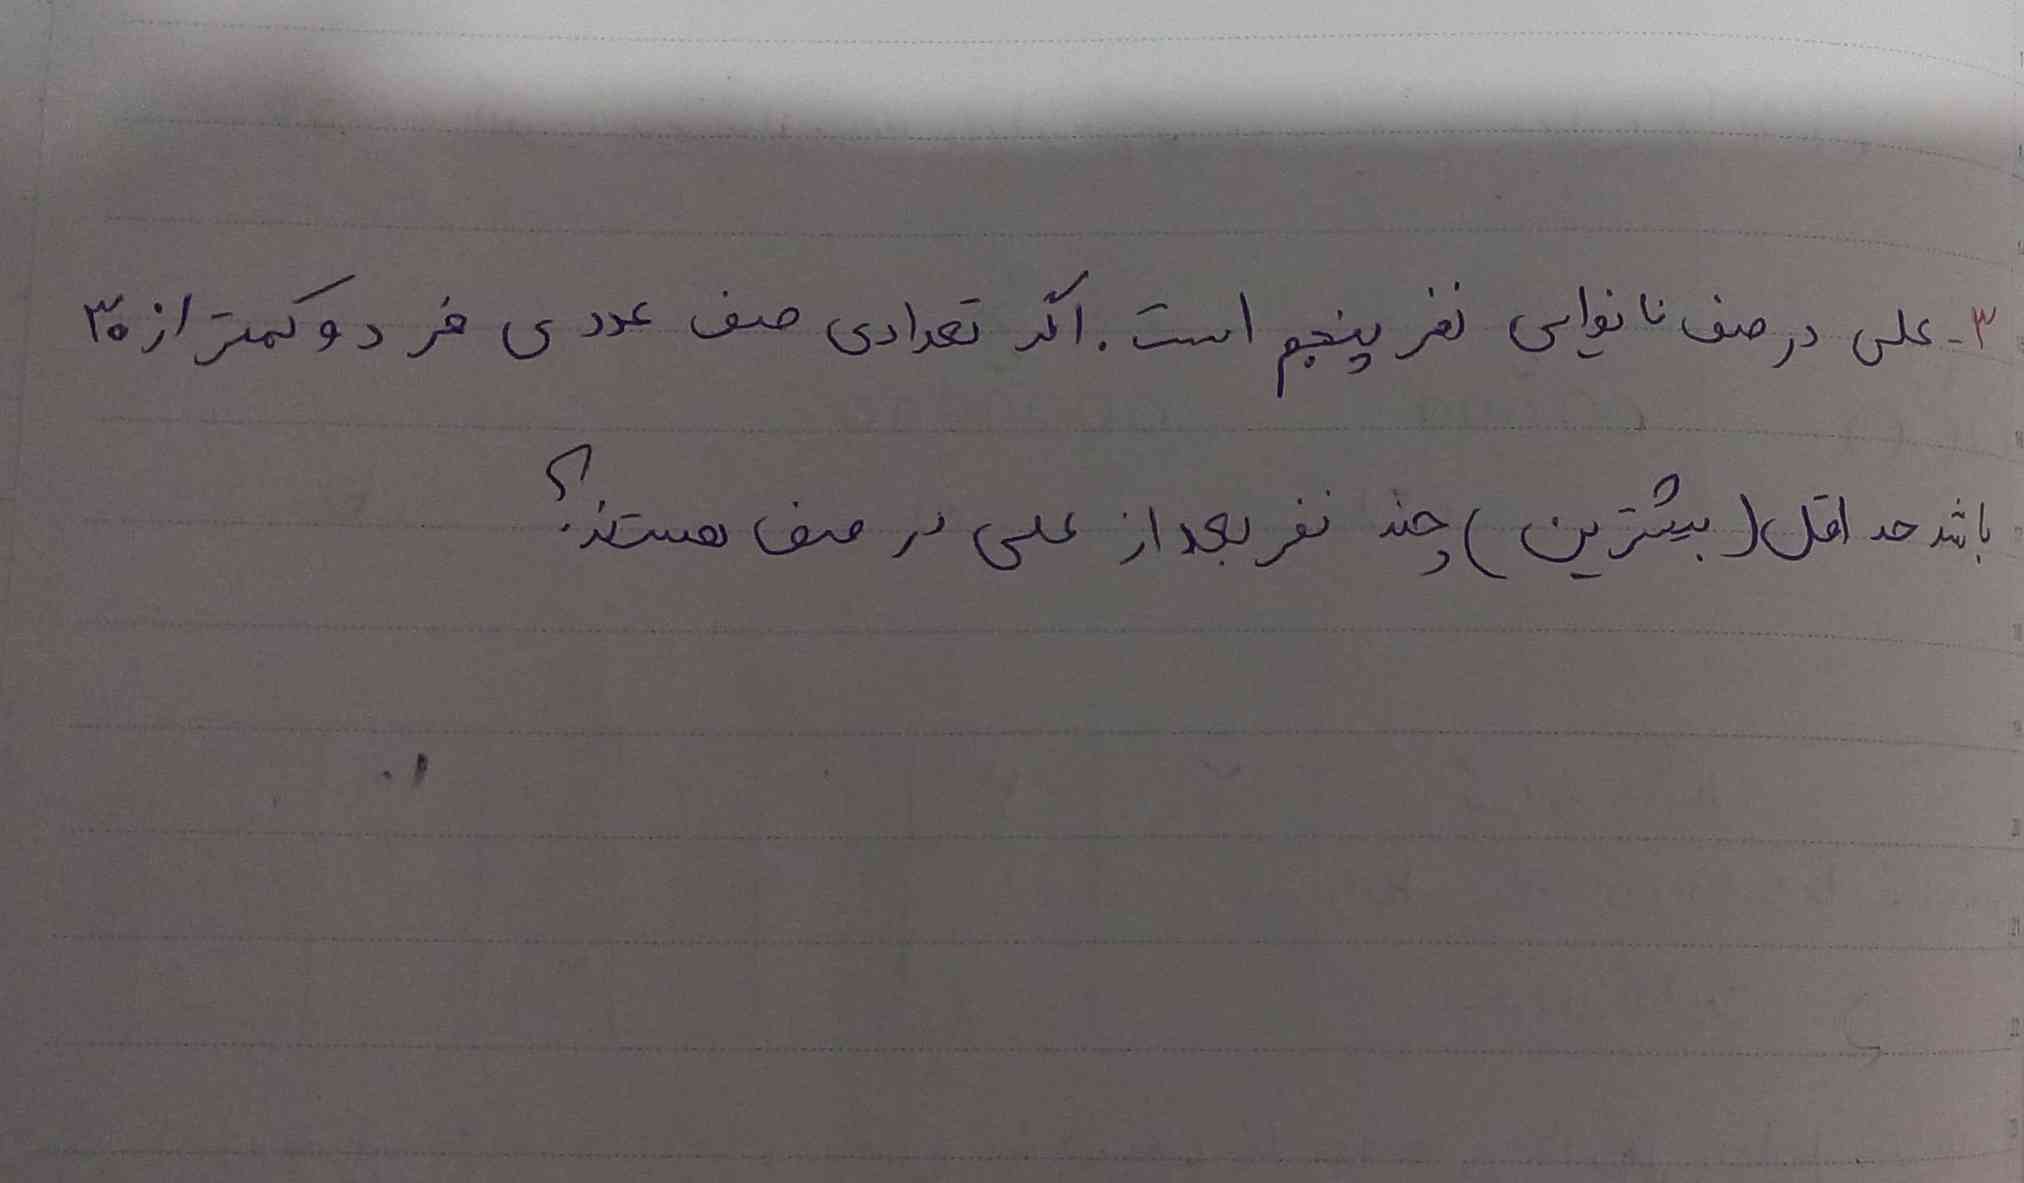 ۳- علی در صف نانوایی نفر پنجم است. اگر تعدادی صف عددی فرد و کمتر از ۳۰
باشد حداقل (بیشترین) چند نفر بعد از علی در صف هستند؟